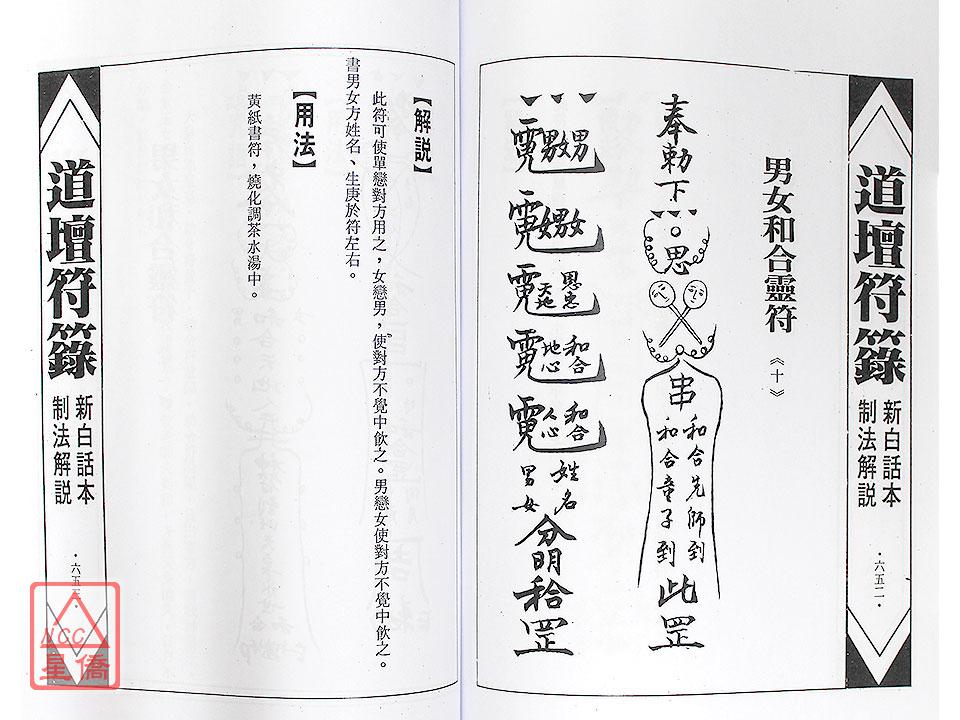 道壇符籙
新白話本
制法解説
·六五二·
男女和合靈符
《十》
奉勅下
思
串
和合先師到
和合童子到
此罡
男女男
女男女
恩忠
天地
和合
地心
和合
人心
姓名
男女
分明
罡
【解説】
此符可使單戀對方用之，女戀男，使對方不覺中飲之。男戀女使對方不覺中飲之。
書男女方姓名、生庚於符左右。
【用法】
黃紙書符，燒化調茶水湯中。
道壇符籙
新白話本
制法解説
·六五三·
NCC
星僑